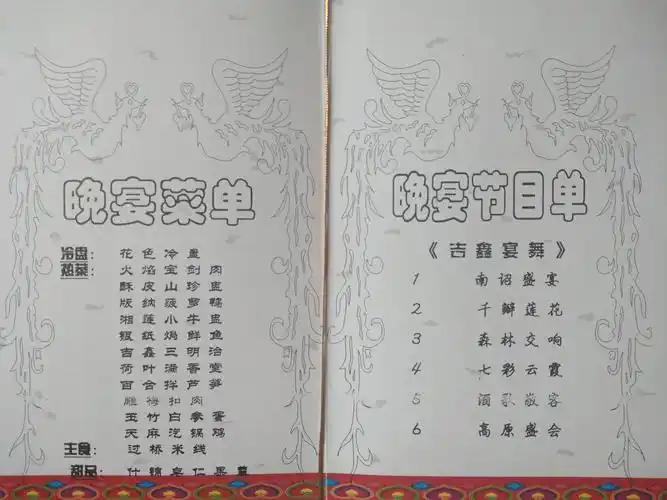 晚宴菜单
冷盘： 花色冷盘
热菜： 火焰宝剑肉
酥皮山珍盅
版纳菠萝鸭
湘莲小牛盅
银纸焗鲜鱼
吉鑫三明治
荷叶满香堂
百合拌芦笋
雕梅扣肉
玉竹白参蛋
天麻汽锅鸡
主食： 过桥米线
甜品： 什锦杂仁果羹
晚宴节目单
《吉鑫宴舞》
1 南诏盛宴
2 千瓣莲花
3 森林交响
4 七彩云霞
5 酒歌敬客
6 高原盛会